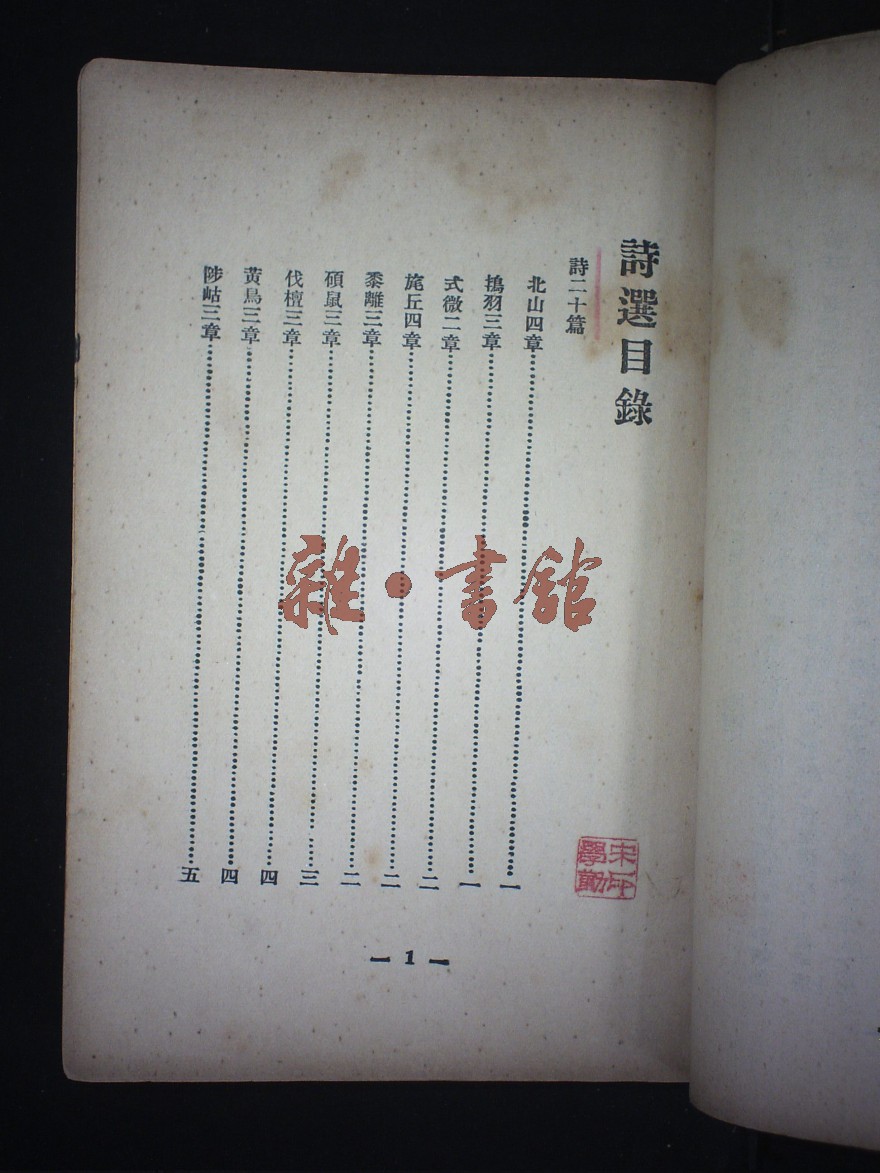 詩選目錄
詩二十篇
北山四章 一
鴇羽三章 一
式微二章 二
旄丘四章 二
黍離三章 二
碩鼠三章 三
伐檀三章 四
黃鳥三章 四
陟岵三章 五
— 1 —
雜·書館
宋學勤印